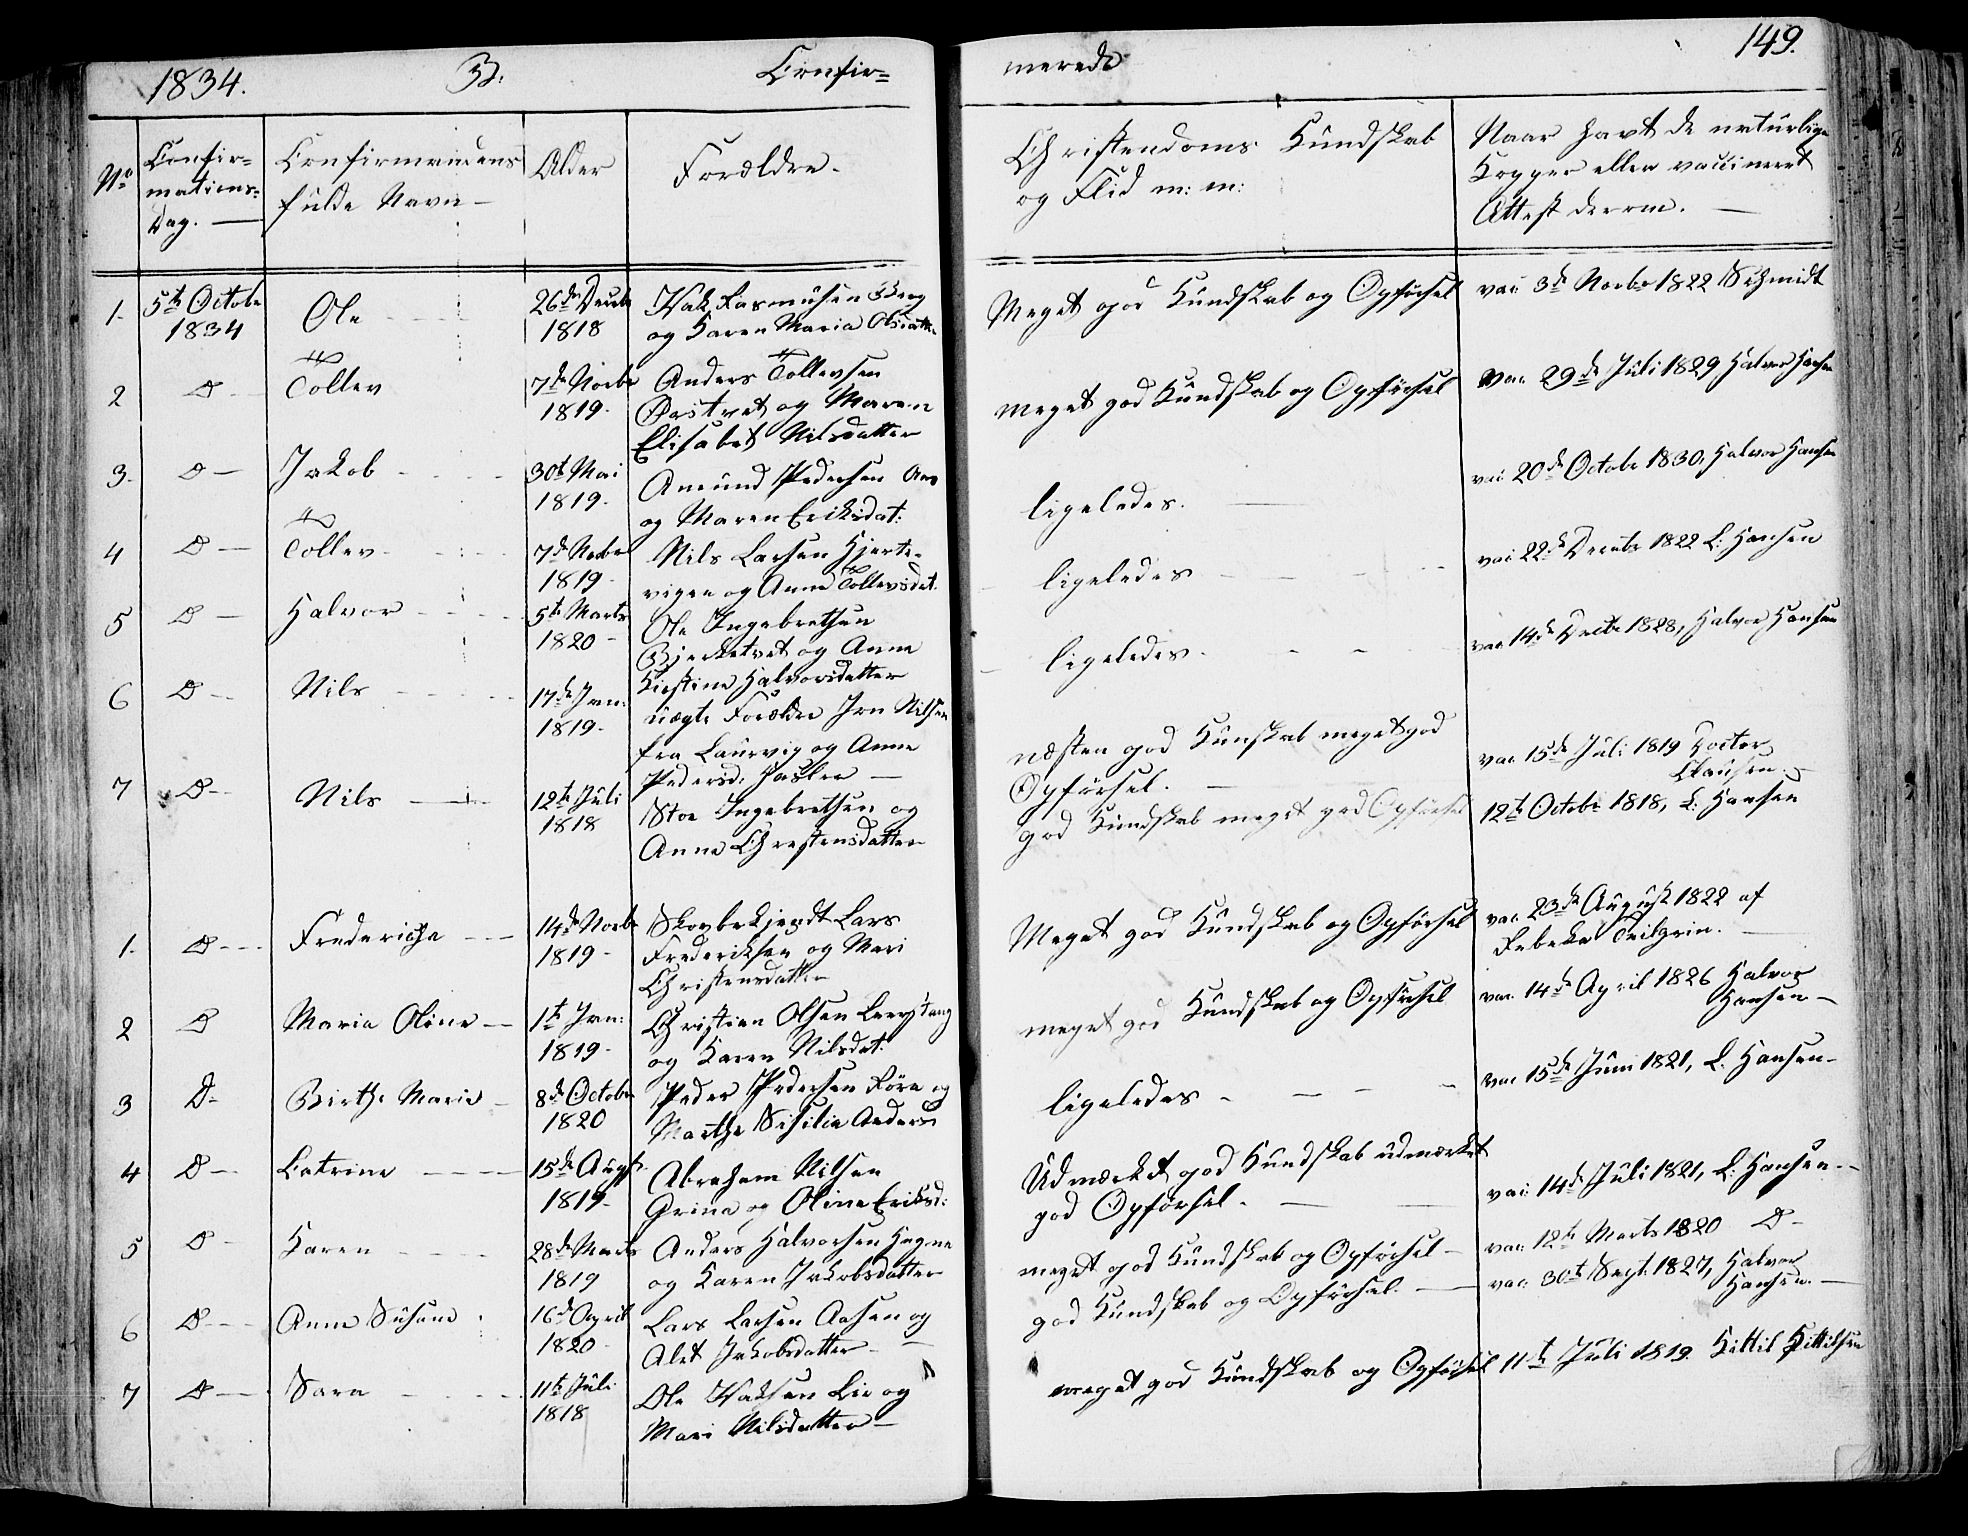 1834. B. Confir= merede 149.
No
Confir=
mations=
Dag.
Confirmandens
fulde Navn
Alder
Forældre
Christendoms Kundskab
og Flid m: m:
Naar havt de naturlige
Kopper eller vaccineret
Attest derom.
1. 5te Octobr 1834 Ole 26de Decbr 1818
Isak Rasmusen Berg
og Karen Maria Olsdatter
Meget god Kundskab og Opførsel
vac: 3de Novbr 1822 Schmidt
2 D Tollev 7de Novbr 1819.
Anders Tollevsen
Østvet og Maren
Elisabet Nilsdatter
meget god Kundskab og Opførsel
vac. 29de Juli 1829 Halvor Hansen
3. D Jakob 30te Mai 1819.
Amund Pedersen Aas
og Maren Eriksdat:
ligeledes.
vac 20de Octobr 1830, Halvor Hansen
4 D Tollev 7de Novbr 1819
Nils Larsen Hjerte=
vigen og Anne Tollevsdat.
ligeledes
vac 22de Decembr 1822 L: Hansen
5 D Halvor 5te Marts 1820
Ole Ingebrethsen
Bjerketvet og Anne
Kirstine Halvorsdatter
ligeledes.
vac. 14de Decbr 1828, Halvor Hansen
6 D Nils 17de Jan: 1819.
uægte Forældre Jon Nilsen
fra Laurvig og Anne
Pedersd.
næsten god Kunskab meget god
Opførsel.
vac. 15de Juli 1819 Doctor
Clausen.
7 D Nils 12te Juli 1818
Ingebrethsen og
Anne Christensdatter
god Kundskab meget god Opførsel
12te Octobr 1818, L. Hansen
1. D Fredericha 14de Novbr 1819
Lars
Frederiksen og Mari
Christensdatter
Meget god Kundskab og Opførsel
vac. 23de August 1822 af
Rebekka
2 D Maria Oline 1te Jan: 1819
Christian Olsen
og Karen Nilsdat.
meget god Kundskab og Opførsel
vac. 14de April 1826 Halvor
Hansen
3 D Birthe Marie 8de Octobr 1820
Peder Pedersen Røra og
Marthe Sisilia Andersd
ligeledes
vac 15de Juni 1821, L. Hansen
4 D Catrine 15de Augst 1819
Abraham Nilsen
Grina og Oline Eriksd:
Udmærket god Kundskab udmærket
god Opførsel.
vac: 14de Juli 1821, L. Hansen.
5 D Karen 28de Marts 1819
Anders Halvorsen
og Karen Jakobsdatter
meget god Kundskab og Opførsel
vac: 12te Marts 1820 D
6 D Anne Susane 16de April 1820
Lars Larsen Aasen og
Alet Jakobsdatter
god Kundskab og Opførsel.
vac. 30te Sept. 1827, Halvor
Hansen.
7 D Sara 11te Juli 1818
Ole Isaksen Lie og
Mari Nilsdatter
meget god Kundskab og Opførsel
11te Juli 1819. Kittil Kittilsen